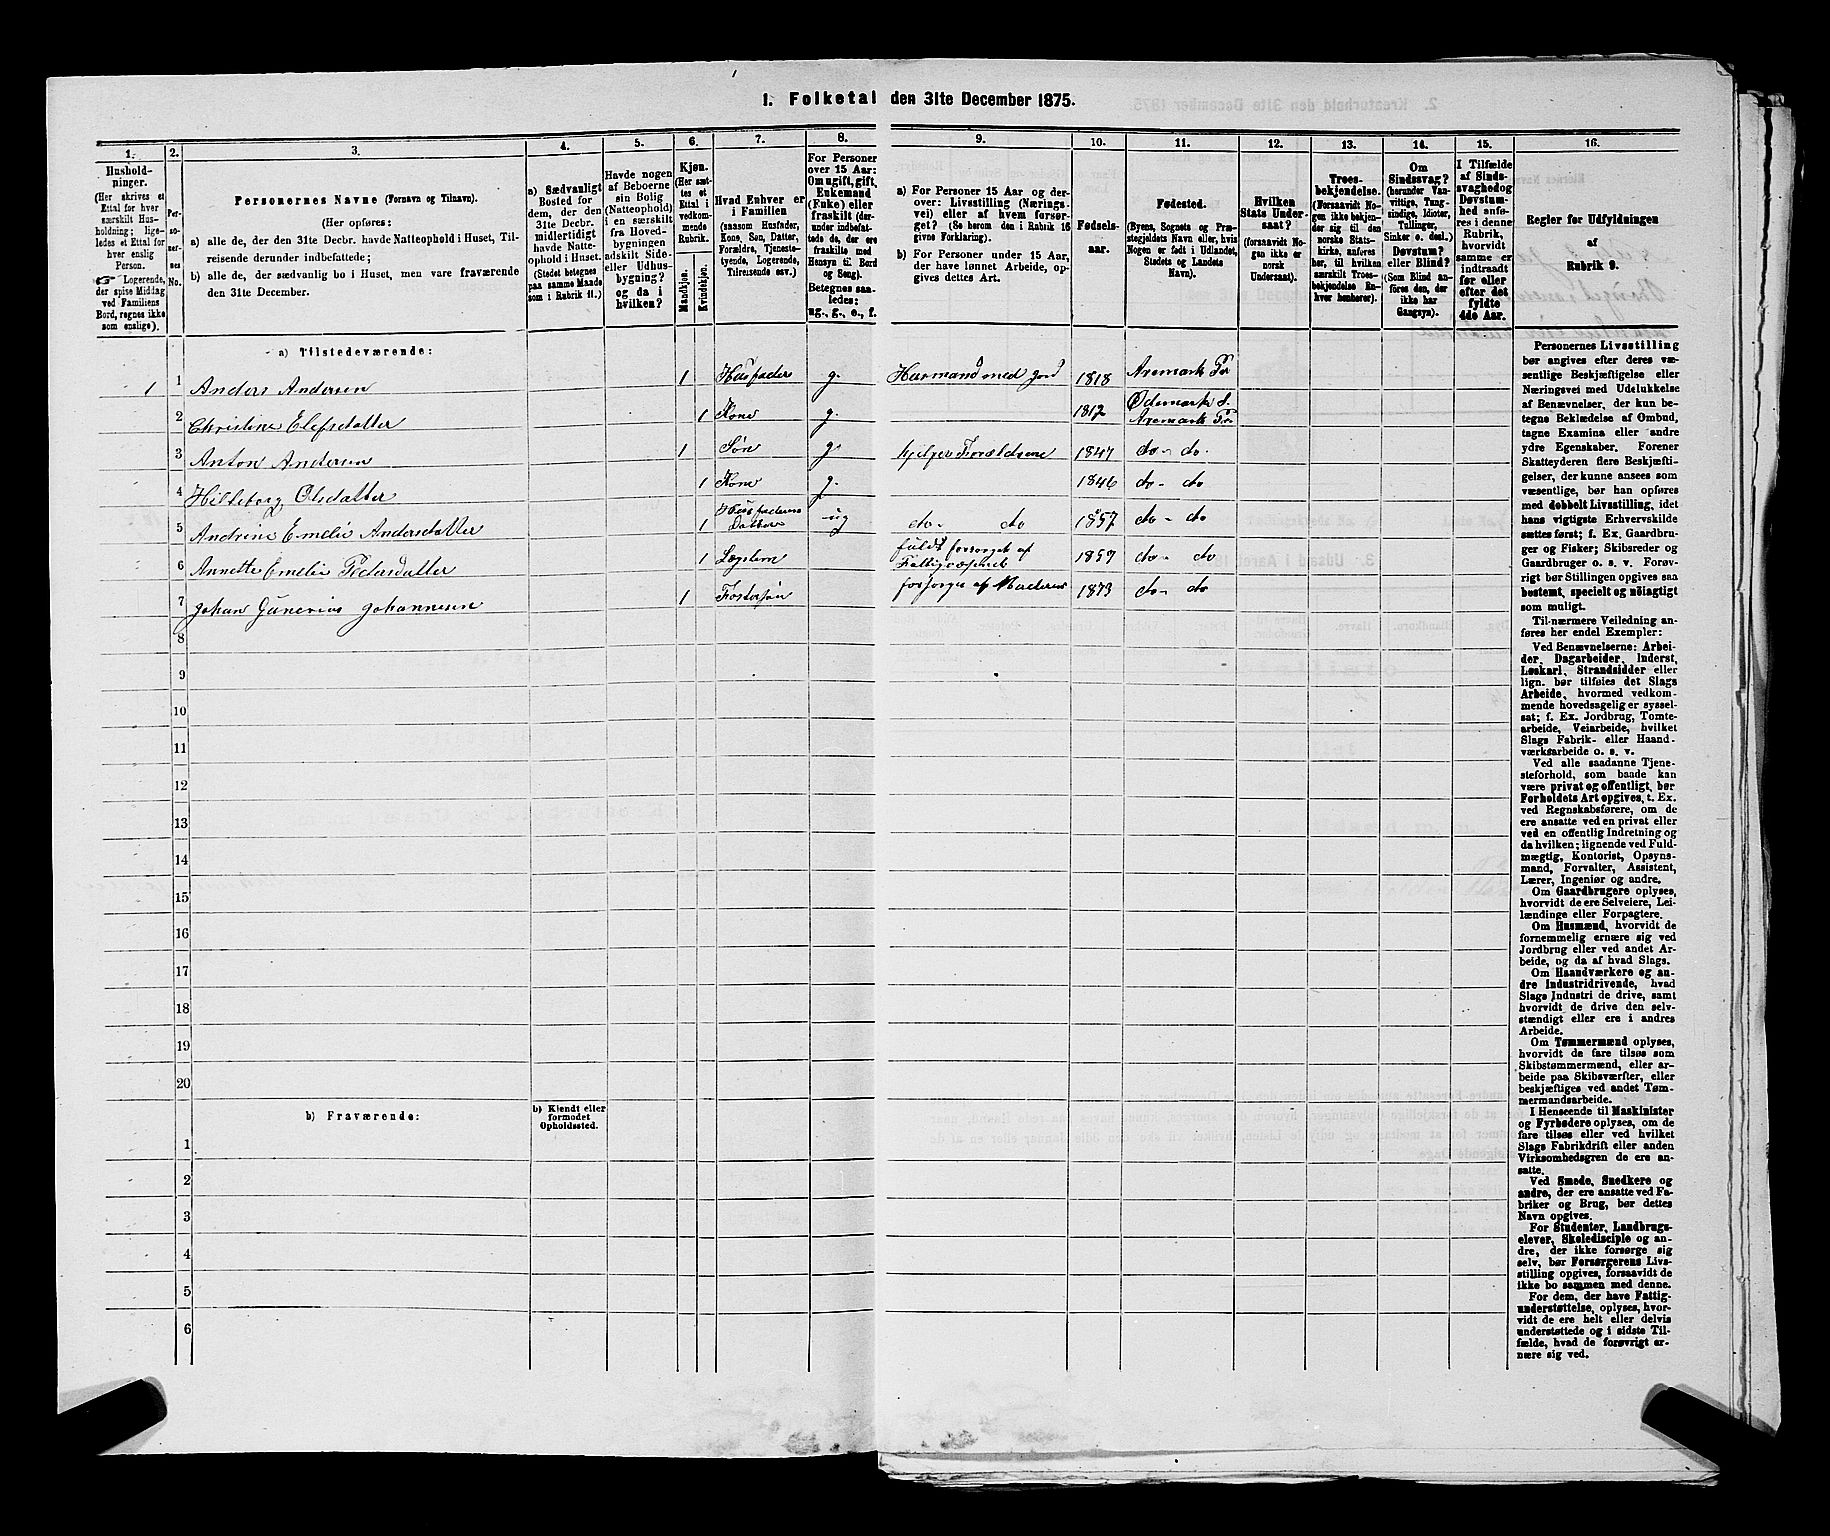 1. Folketal den 31te December 1875.
1.
Hushold-
ninger.
(Her skrives et
Ettal for hver
særskilt Hus-
holdning; lige-
ledes et Ettal for
hver enslig
Person.
Logerende,
der spise Middag
ved Familiens
Bord, regnes ikke
som enslige).
2.
Per-
so-
ner-
nes
No.
3.
Personernes Navne (Fornavn og Tilnavn).
(Her opføres:
a) alle de, der den 31te Decbr. havde Natteophold i Huset, Til-
reisende derunder indbefattede;
b) alle de, der sædvanlig bo i Huset, men vare fraværende
den 31te December.
4.
a) Sædvanligt
Bosted for
dem, der den
31te Decbr.
midlertidigt
havde Natte-
ophold i Huset.
(Stedet betegnes
paa samme Maade
som i Rubrik 11.)
5.
Havde nogen
af Beboerne
sin Bolig
(Natteophold)
i en særskilt
fra Hoved-
bygningen
adskilt Side-
eller Udhus-
bygning?
og da i
hvilken?
6.
Kjøn.
(Her sæt-
tes et
Ettal i
vedkom-
mende
Rubrik.
Mandkjøn.
Kvindekjøn.
7.
Hvad Enhver er
i Familien
(saasom Husfader,
Kone, Søn, Datter,
Forældre, Tjeneste-
tyende, Logerende,
Tilreisende osv.)
8.
For Personer
over 15 Aar:
Om ugift, gift,
Enkemand
(Enke) eller
fraskilt (der-
under indbefat-
tede de, der ere
fraskilte med
Hensyn til Bord
og Seng).
Betegnes saa-
ledes:
ug., g., e., f.
9.
a) For Personer 15 Aar og der-
over: Livsstilling (Nærings-
vei) eller af hvem forsør-
get? (Se herom den i Rubrik 16
givne Forklaring).
b) For Personer under 15 Aar,
der have lønnet Arbeide, op-
gives dettes Art.
10.
Fødsels-
aar.
11.
Fødested.
(Byens, Sognets og Præ-
stegjeldets Navn eller, hvis
Nogen er født i Udlandet,
Stedets og Landets
Navn).
12.
Hvilken
Stats Under-
saat?
(forsaavidt No-
gen ikke er
norsk
Undersaat).
13.
Troes-
bekjendelse.
(Forsaavidt No-
gen ikke bekjen-
der sig til den
norske Stats-
kirke, anføres
her, til hvilken
særskilt Troes-
bekjendelse En-
hver henhører).
14.
Om
Sindssvag?
(herunder Van-
vittige, Tung-
sindige, Idioter,
Tullinger,
Sinker o. desl.)
Døvstum?
eller Blind?
(Som Blind an-
føres den, der
ikke har
Gangsyn).
15.
I Tilfælde
af Sinds-
svaghed og
Døvstum-
hed anfø-
res i denne
Rubrik,
hvorvidt
samme er
indtraadt
før eller
efter det
fyldte
4de Aar.
16.
Regler for Udfyldningen
af
Rubrik 9.
a) Tilstedeværende:
1 1 Anders Andersen 1 Husfader g. Husmand med Jord 1818 Aremark
2 Christine Elefsdatter 1 Kone g. 1812 Ødemark S. Aremark
3 Anton Andersen 1 Søn g. hjelper Forældrene 1847 do- do.
4 Hilleborg Olsdatter 1 Kone g. 1846 do- do
5 Andrine Emelie Andersdatter 1 Husfaderens Datter ug do- do 1857 do- do
6 Annette Emelie Pedersdatter 1 Lægslem fuldt forsørget af Fattigvæsenet 1859 do- do
7 Johan Gunerius Johannesen 1 Fostersøn forsørges af Moderen 1873 do- do
8
9
10
11
12
13
14
15
16
17
18
19
20
b) Fraværende:
b) Kjendt eller
formodet
Opholdssted.
1
2
3
4
5
6
Personernes Livsstilling
bør angives efter deres væ-
sentlige Beskjæftigelse eller
Næringsvei med Udelukkelse
af Benævnelser, der kun be-
tegne Beklædelse af Ombud,
tagne Examina eller andre
ydre Egenskaber. Forener
Skatteyderen flere Beskjæfti-
gelser, der kunne ansees som
væsentlige, bør han opføres
med dobbelt Livsstilling, idet
hans vigtigste Erhvervskilde
sættes først; f. Ex. Gaardbru-
ger og Fisker; Skibsreder og
Gaardbruger o. s. v. Forøv-
rigt bør Stillingen opgives saa
bestemt, specielt og nøiagtigt
som muligt.
Til nærmere Veiledning an-
føres her endel Exempler:
Ved Benævnelserne: Arbei-
der, Dagarbeider, Inderst,
Løskarl, Strandsidder eller
lign. bør tilføies det Slags
Arbeide, hvormed vedkom-
mende hovedsagelig er syssel-
sat; f. Ex. Jordbrug, Tomte-
arbeide, Veiarbeide, hvilket
Slags Fabrik- eller Haand-
værksarbeide o. s. v.
Ved alle saadanne Tjene-
steforhold, som baade kan
være privat og offentligt, bør
Forholdets Art opgives, t. Ex.
ved Regnskabsførere, om de
ere ansatte ved en privat eller
ved en offentlig Indretning og
da hvilken; lignende ved Fuld-
mægtig, Kontorist, Opsyns-
mand, Forvalter, Assistent,
Lærer, Ingeniør og andre.
Om Gaardbrugere oplyses,
hvorvidt de ere Selveiere, Lei-
lændinge eller Forpagtere.
Om Husmænd, hvorvidt de
fornemmelig ernære sig ved
Jordbrug eller ved andet Ar-
beide, og da af hvad Slags.
Om Haandværkere og an-
dre Industridrivende, hvad
Slags Indnstri de drive, samt
hvorvidt de drive den selv-
stændigt eller ere i andres
Arbeide.
Om Tømmermænd oplyses,
hvorvidt de fare tilsøs som
Skibstømmermænd, eller ar-
beide paa Skibsværfter, eller
beskjæftiges ved andet Tøm-
mermandsarbeide.
I Henseende til Maskinister
og Fyrbødere oplyses, om de
fare tilsøs eller ved hvilket
Slags Fabrikdrift eller anden
Virksomhedsgren de ere an-
satte.
Ved Smede, Snedkere og
andre, der ere ansatte ved Fa-
briker og Brug, bør dettes
Navn opgives.
For Studenter, Landbrugs-
elever, Skoledisciple og an-
dre, der ikke forsørge sig
selv, bør Forsørgerens Livs-
stilling opgives, forsaavidt de
ikke bo sammen med denne.
For dem, der have Fattig-
understøttelse, oplyses, hvor-
vidt de ere helt eller delvis
understøttede og i sidste Til-
fælde, hvad de forøvrigt er-
nære sig ved.